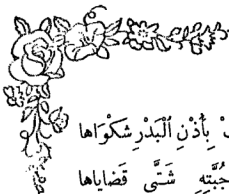 بِأُذْنِ ٱلْبَدْرِ شَكْوَاهَا
جُبَّتِهِ شَتَّى قَضَايَاها